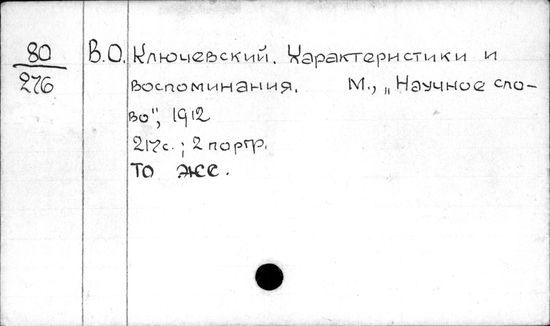 80 В.О. Ключевский. Характеристики и
276 воспоминания. М., „Научное сло-
во", 1912
217с.; 2 портр.
То же.